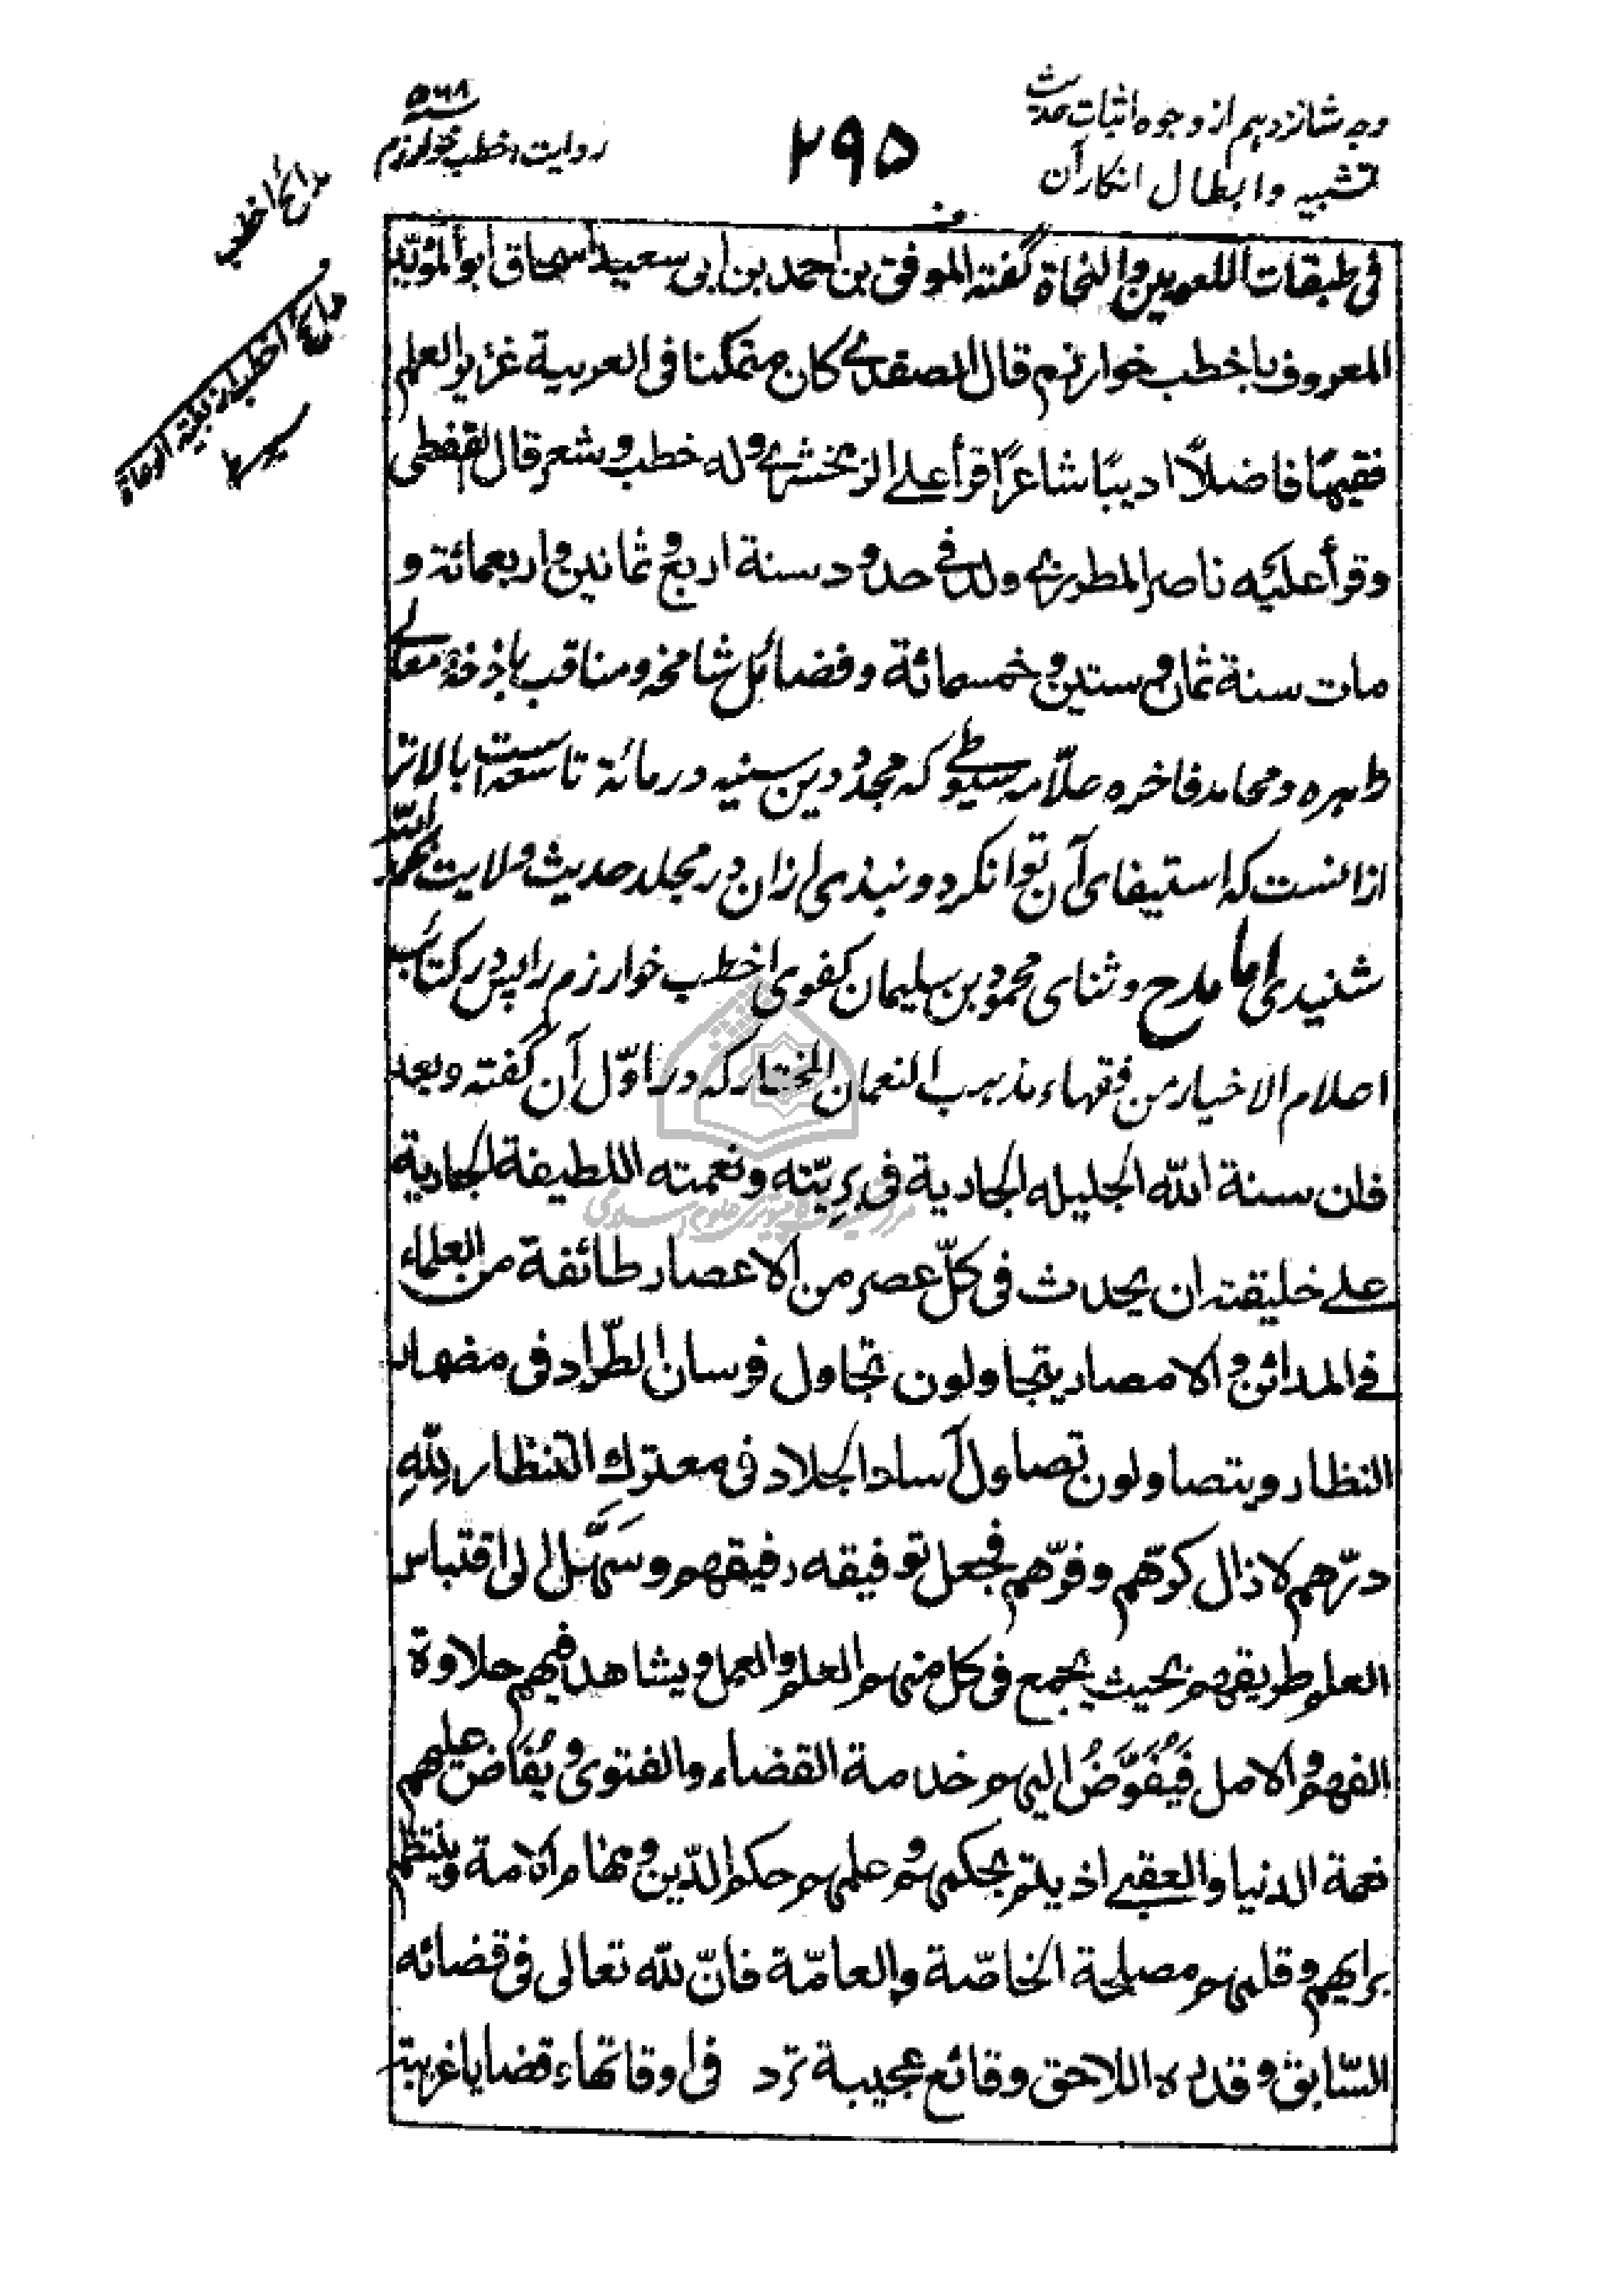 وجه شانزدهم از وجوه اثبات حدیث
تشبیه و ابطال انکار آن
۲۹۵
سنه ۵۶۸
روایت اخطب خوارزم
مدائح اخطب
مدائح اخطب از بغیة الوعاة
سیوطی
فی طبقات اللغویین والنحاة گفته الموفق بن احمد بن ابی سعید اسحاق ابو المؤیّد
المعروف باخطب خوارزم قال الصفدی کان متمکنا فی العربیة غزیر العلم
فقیهًا فاضلًا ادیبًا شاعرًا قرأ علی الزمخشری وله خطب و شعر قال القفطی
وقرأ علیه ناصر المطرزی ولد فی حدود سنة اربع و ثمانین و اربعمائة و
مات سنة ثمان و ستین و خمسمائة و فضائل شامخه و مناقب باذخه و معالی
ظاهره و محامد فاخره علّامه سیوطی که مجدد دین سنیه در مائة تاسعه است بالاتر
ازانست که استیفای آن توان کرد و نبذی ازان در مجلد حدیث ولایت بحمد اللّه
شنیدی اما مدح و ثنای محمود بن سلیمان کفوی اخطب خوارزم را پس در کتائب
اعلام الاخیار من فقهاء مذهب النعمان المختار که در اوّل آن گفته و بعد
فان سنة اللّه الجلیله الجاریة فی بریّته و نعمته اللطیفة الجاریة
علی خلیقته ان یحدث فی کلّ عصر من الاعصار طائفة من العلماء
فی المدائن و الامصار یتجاولون تجاول فرسان الطّراد فی مضمار
النظار و یتصاولون تصاول آساد الجلاد فی معترك التنظار للّهِ
درّهم لا زال کرّهم و فرّهم فجعل توفیقه رفیقهم و سَهَّل الی اقتباس
العلم طریقهم بحیث یجمع فی کل منهم العلم والعمل و یشاهد فیهم حلاوة
الفهم و الامل فَیُفَوَّضُ الیهم خدمة القضاء والفتوی و یُفَاض علیهم
نعمة الدنیا والعقبی اذ یلتم بحکمهم و علمهم حکم الدّین و مهام الامة و ینتظم
برایهم و قلمهم مصلحة الخاصّة والعامّة فانّ للّه تعالی فی قضائه
السّابق و قدره اللاحق وقائع عجیبة ترد فی اوقاتها و قضایا غریبة